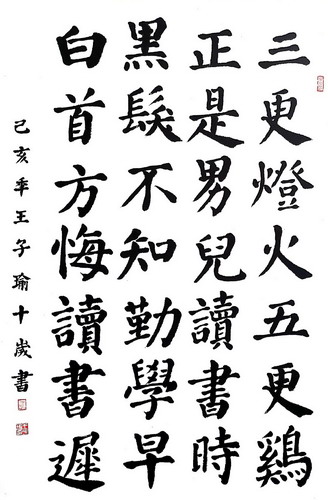 三更燈火五更鷄
正是男兒讀書時
黑髮不知勤學早
白首方悔讀書遲
己亥年王子瑜十歲書